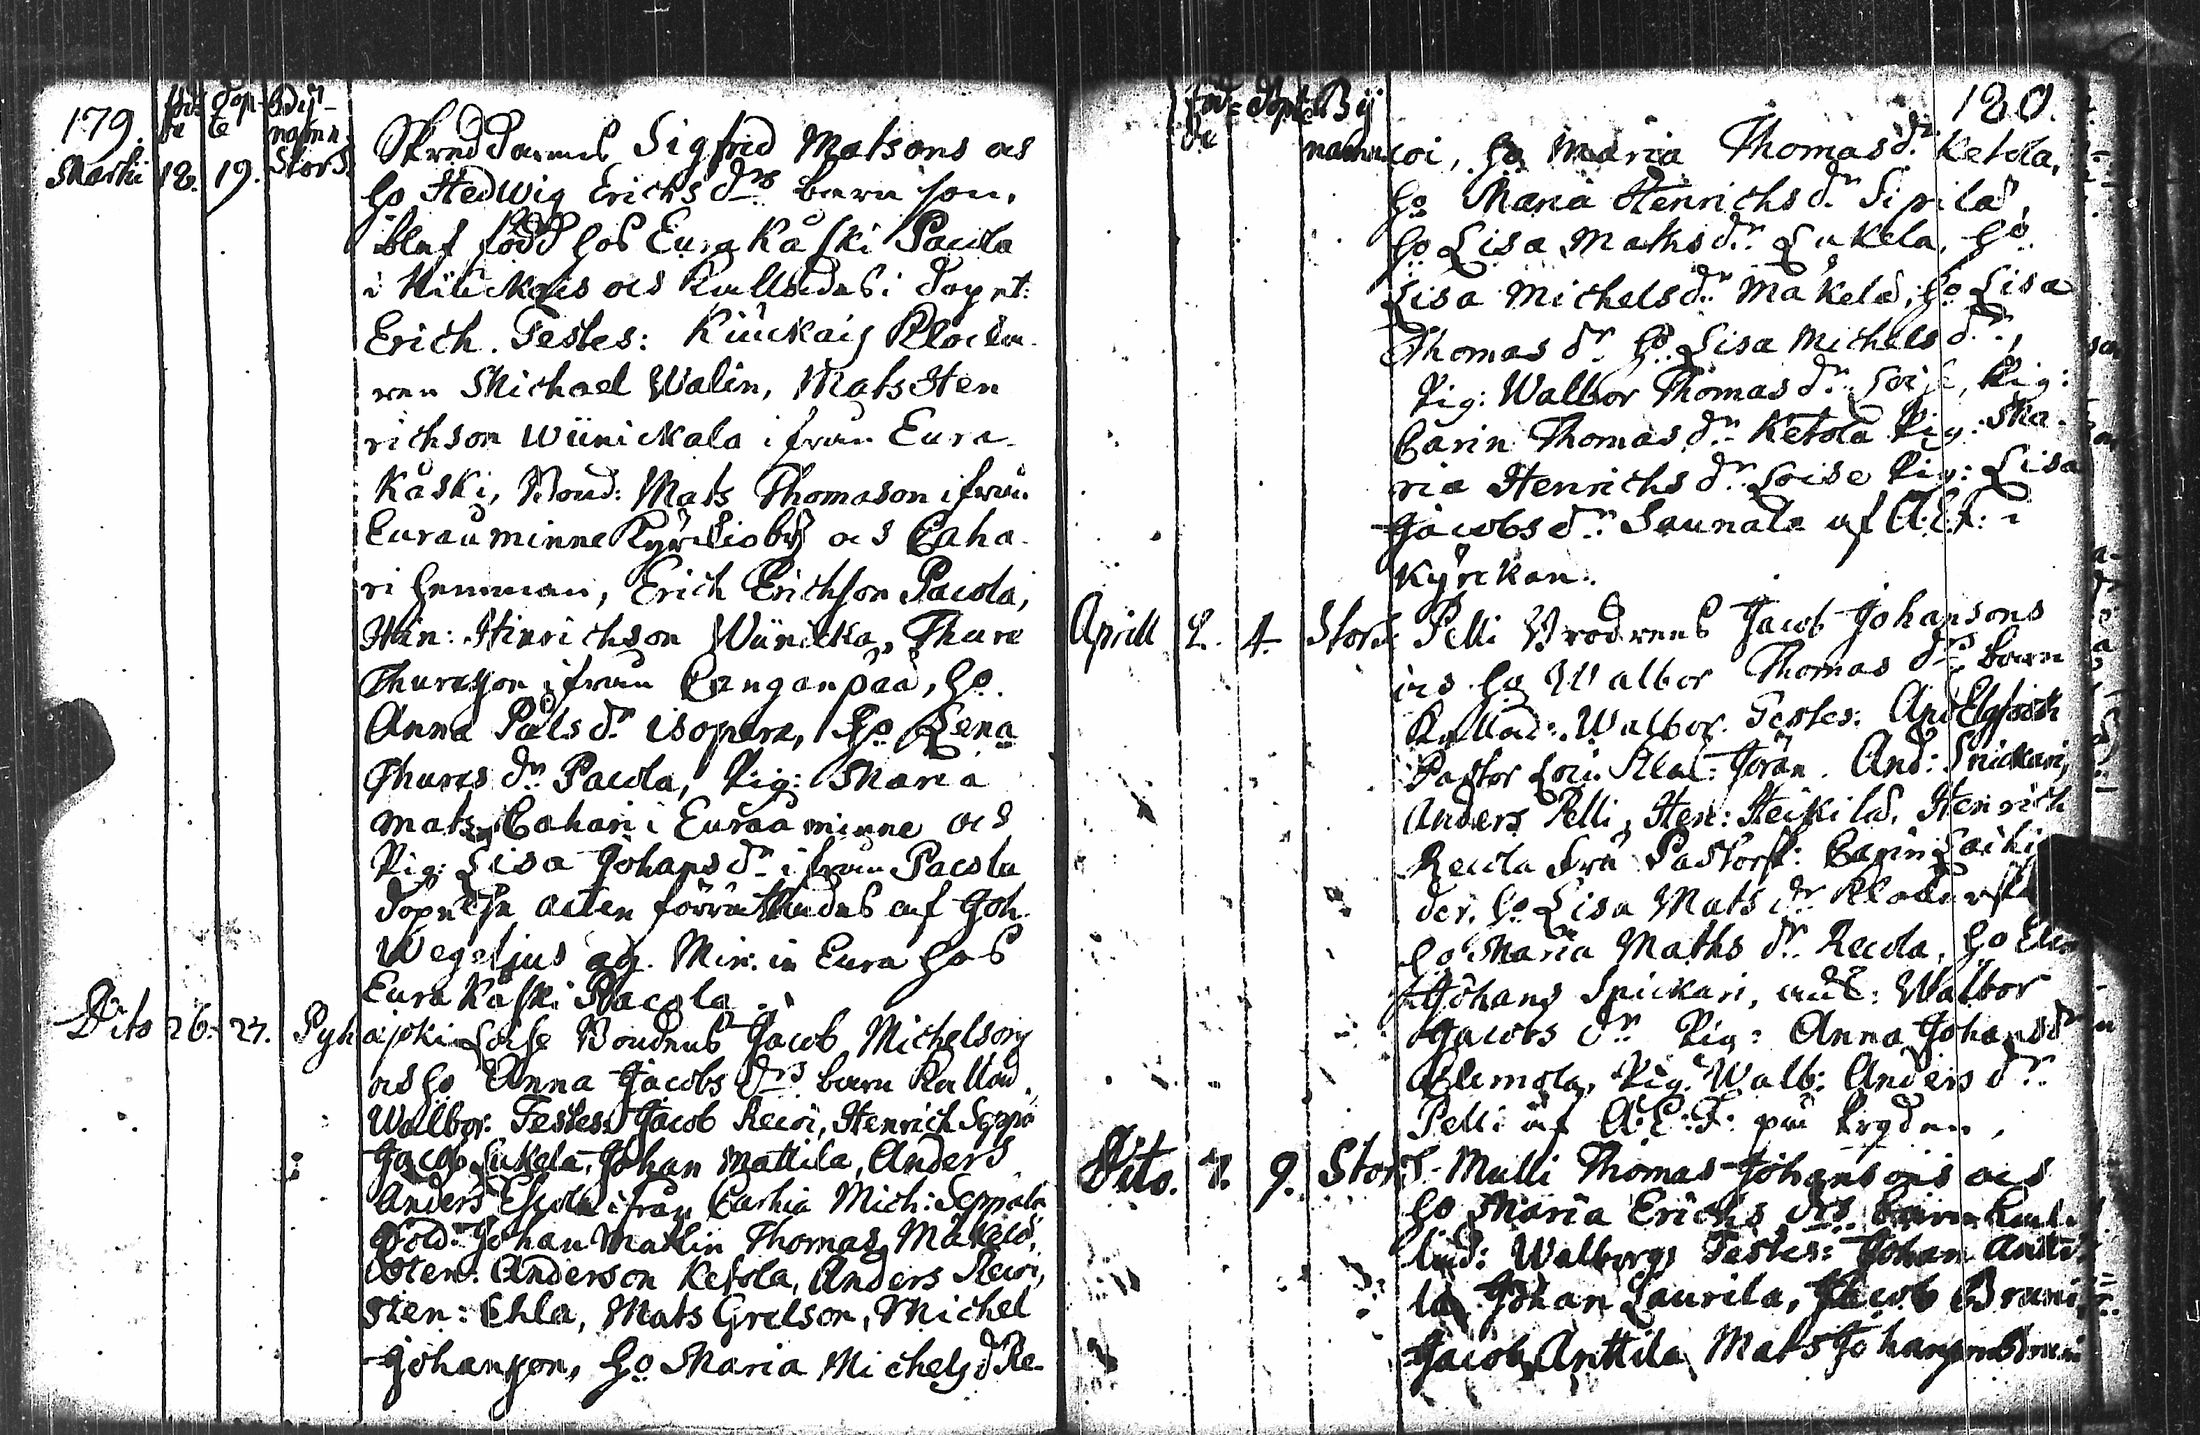 179. föd de döp te Bÿ namn
Martii 18. 19. StorS. Skreddarens Sigfred Matsons och
ho Hedwig Erichs drs barn son,
blef född hos Eura Kåski Pacola
i Kiuckais och Kallades i dopet:
Erich. Testes: Kiuckais Klocka-
ren Michael Walin, Mats Hen
richson Wiinickala ifrån Eura
Kåski, Bond: Mats Thomason ifrån
Euraåminne Kyrckioby och Caha-
ri hemman, Erich Erichson Pacola,
Hin: Hinrichson Wiinicka, Thure
Thureson ifrån Canganpää, ho.
Anna Påls dr Isopere, ho Lena
Thures dr Pacola, Pig: Maria
Mats Cahari i Euraåminne och
Pig: Lisa Johans dr ifrån Pacola
döpelse acten förrättades af Joh.
Wegelius adj. Min. in Eura hos
Eura Kåski Pacola.
Dito 26. 27. Pyhäjoki Loise Bondens Jacob Michelsons
och ho Anna Jacobs drs barn Kallad.
Walbor: Testes: Jacob Recoi, Henrich Seppä
Jacob Lukela, Johan Mattila, Anders
Anders Eskola ifrån Carhia Mich: Seppälä
Sold: Johan Matlin Thomas Mäkelä,
Hen: Anderson Ketola, Anders Recoi,
Hen: Ehla, Mats Grelson, Michel
Johanson, ho Maria Michels d Re-
föd= de döpte Bÿ namn 180.
coi, ho Maria Thomas dr Ketola,
ho Maria Henrichs dr Sipilä,
ho Lisa Maths dr Lukela, ho
Lisa Michels dr Mäkelä, ho Lisa
Thomas dr ho Lisa Michels dr,
Pig: Walbor Thomas dr Loise, Pig:
Carin Thomas dr Ketola Pig: Ma-
ria Henrichs dr Loise Pig: Lisa
Jacobs dr Saunala af A: E: F: i
Kyrckan.
Aprill 2. 4. StorS. Pelli Brodrens Jacob Johansons
och ho Walbor Thomas drs barn
Kallad: Walbor. Testes: And Elgfooth
Pastor Loci Klac: Jöran. And: Snickari,
Anders Pelli, Hen: Heikilä, Henrich
Recola Fru Pastorsk: Carin
der. ho Lisa Mats dr
ho Maria Maths dr Recola, ho
Johans Snickari, Walbor
Jacobs dr Pig: Anna Johans dr
Clemola, Pig: Walb: Anders dr
Pelli af A: E: F: på bygden.
Dito. 7. 9. StorS. Mulli Thomas Johansons och
ho Maria Erichs drs barn Kal
lad: Walborg Testes: Johan Antti
la Johan Laurila, Jacob Bruni
Jacob Anttila Mats Johanson Bruni